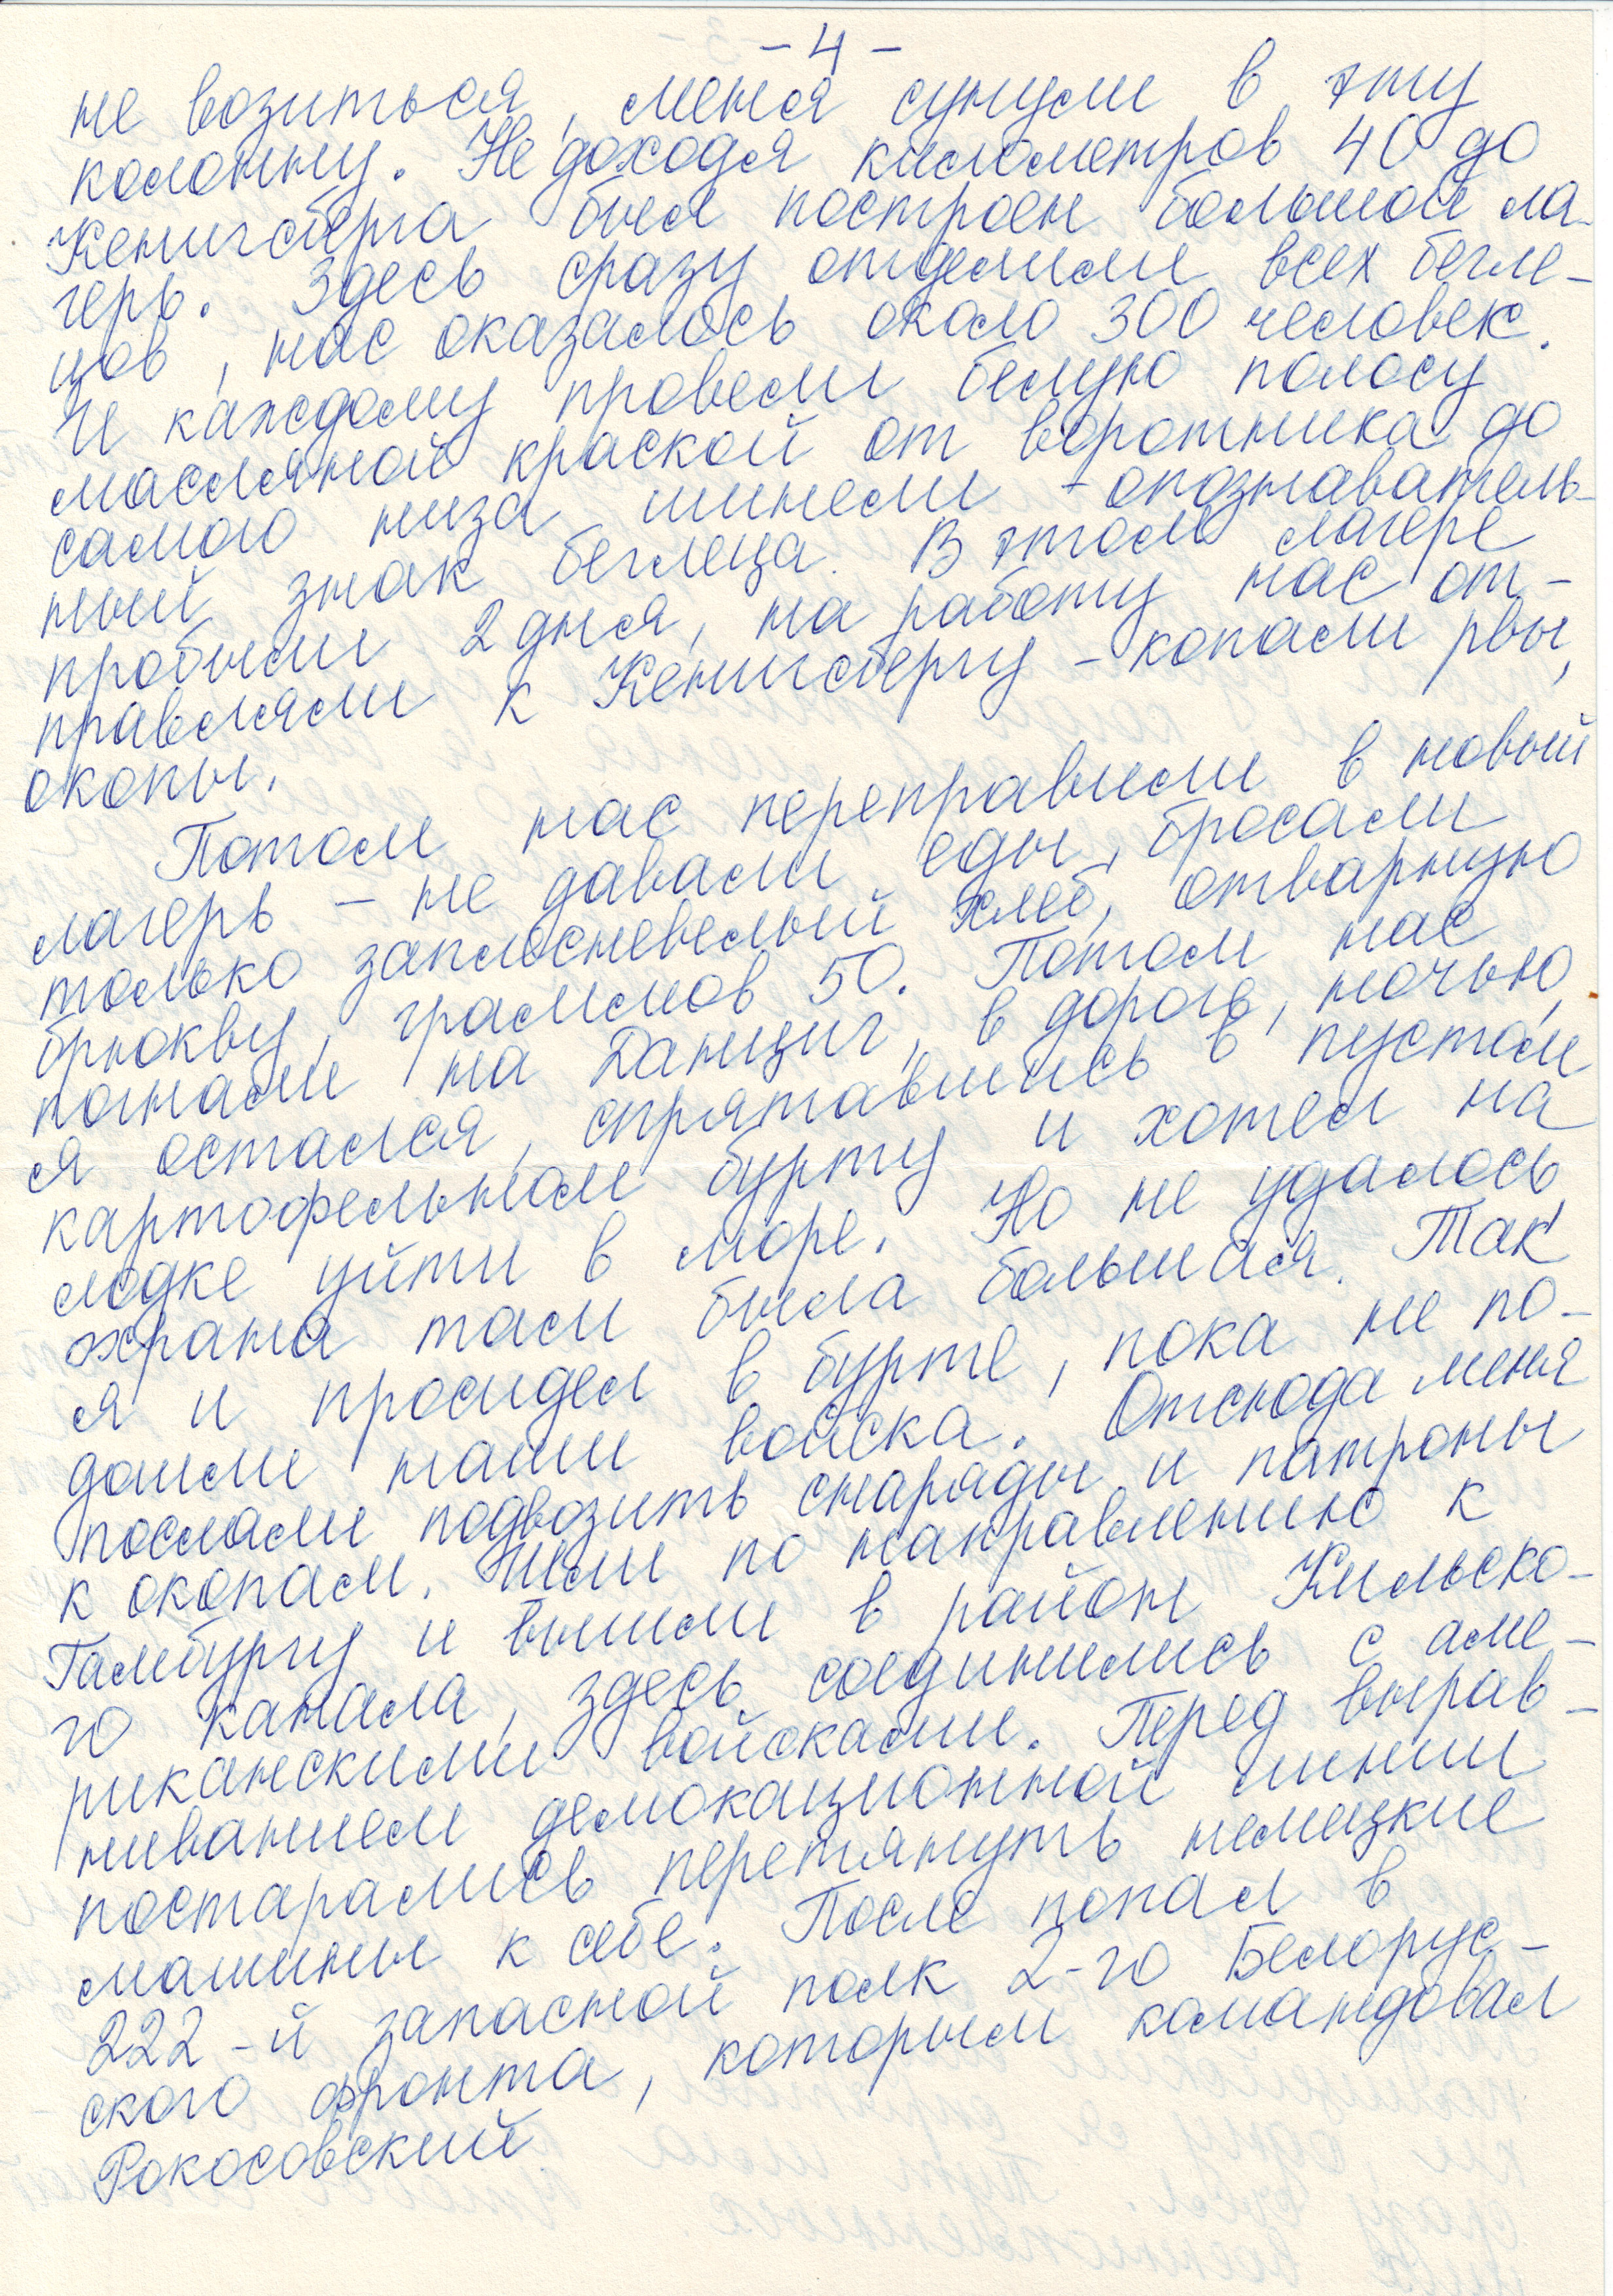 - 4 -
не возиться, меня сунули в эту
колонну. Не доходя километров 40 до
Кенигсберга был построен большой ла-
герь. Здесь сразу отделили всех бегле-
цов, нас оказалось около 300 человек.
И каждому провели белую полосу
масляной краской от воротника до
самого низа шинели - опознаватель-
ный знак беглеца. В этом лагере
пробыли 2 дня, на работу нас от-
правляли к Кенигсбергу - копали рвы,
окопы.
Потом нас переправили в новый
лагерь - не давали еды, бросали
только заплесневелый хлеб, отварную
брюкву, граммов 50. Потом нас
погнали на Данциг, в дороге, ночью,
я остался, спрятавшись в пустом
картофельном бурту и хотел на
лодке уйти в море. Но не удалось,
охрана там была большая. Так
я и просидел в бурте, пока не по-
дошли наши войска. Отсюда меня
послали подвозить снаряды и патроны
к окопам. Шли по направлению к
Гамбургу и вышли в район Кильско-
го канала, здесь соединились с аме-
риканскими войсками. Перед вырав-
ниванием демокационной линии
постарались перетянуть немецкие
машины к себе. После попал в
222-й запасной полк 2-го Белорус-
ского фронта, которым командовал
Рокосовский